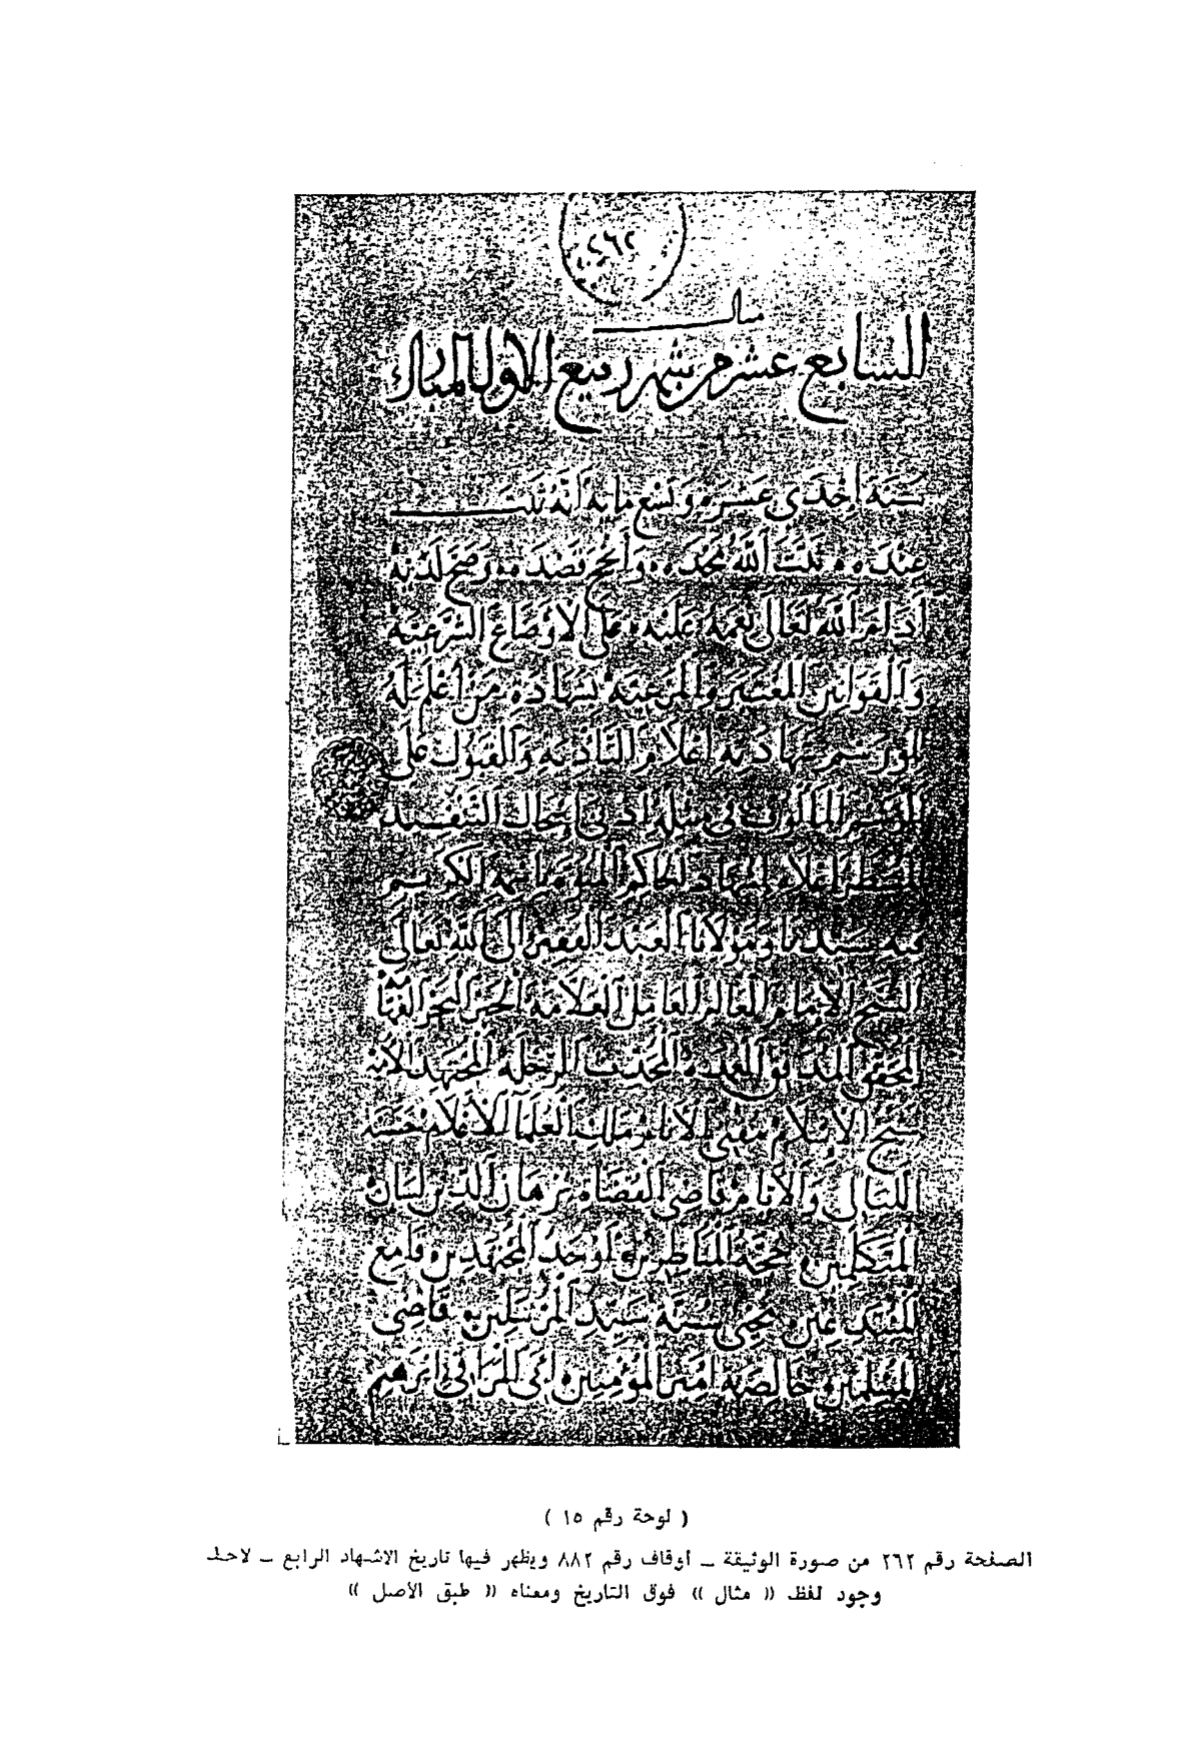 ٢٦٢
مثال
السابع عشر من شهر ربيع الاول المبارك
سنة احدى عشره وتسع مايه انه ثبت
عنده ثبت الله مجده وانجح قصده وصح لديه
ادام الله تعالى نعمه عليه على الاوضاع الشرعية
والقوانين المعتبرة المرعية بشهادة من اعلم له
تلو رسم شهادته اعلام التادية والقبول على
الرسم المألوف في مثله في اسجال التنفيذ
المسطر اعلاه اشهاد الحاكم المنوه باسمه الكريم
فيه سيدنا ومولانا العبد الفقير الى الله تعالى
الشيخ الامام العالم العامل العلامة الحبر البحر الفهامة
المحقق المدقق العمدة المحدث الرحلة المجتهد الامة
شيخ الاسلام مفتي الانام ملك العلما الاعلام حسنة
الليالي والايام قاضي القضاة برهان الدين لسان
المتكلمين حجة المناظرين اوحد المجتهدين قامع
المبتدعين محيي سنة سيد المرسلين قاضي
المسلمين خالصة امير المؤمنين ابي ابرهيم
( لوحة رقم ١٥ )
الصفحة رقم ٢٦٢ من صورة الوثيقة ــ أوقاف رقم ٨٨٢ ويظهر فيها تاريخ الاشهاد الرابع ــ لاحظ
وجود لفظ (( مثال )) فوق التاريخ ومعناه (( طبق الأصل ))